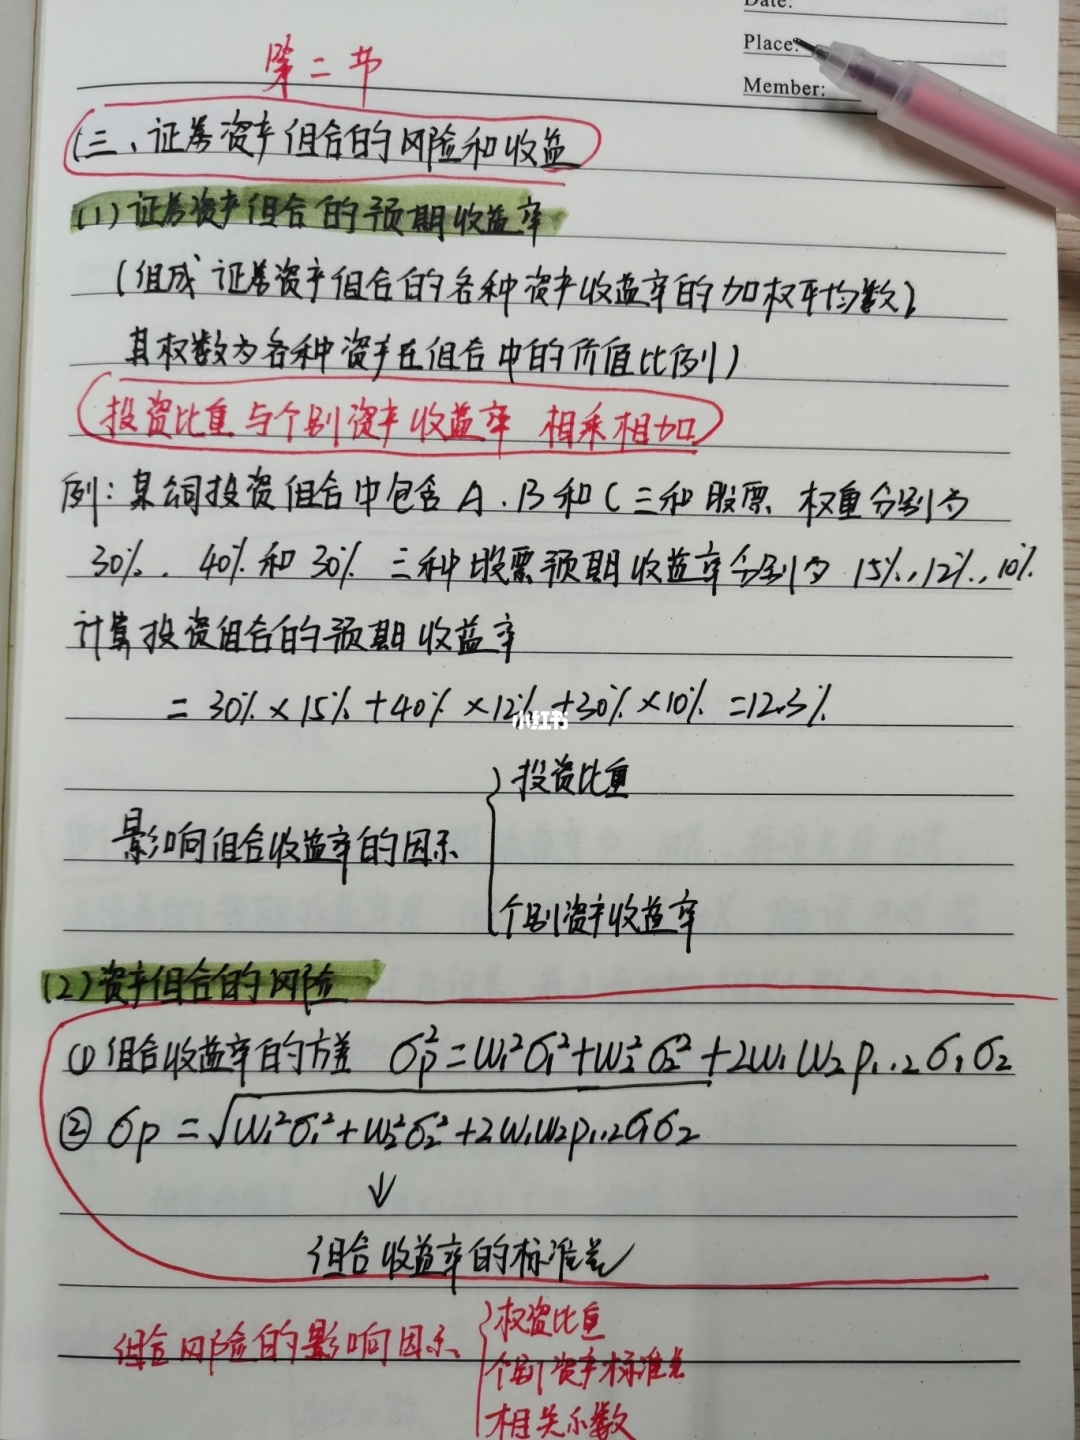 Date:
Place:
Member:
第二节
三、证券资产组合的风险和收益
(1)证券资产组合的预期收益率
(组成证券资产组合的各种资产收益率的加权平均数,
其权数为各种资产在组合中的价值比例)
投资比重与个别资产收益率 相乘相加
例:某公司投资组合中包含A.B和C三种股票.权重分别为
30%.40%和30% 三种股票预期收益率分别为15%,12%,10%
计算投资组合的预期收益率
=30%×15%+40%×12%+30%×10%=12.3%
小红书
投资比重
影响组合收益率的因素
个别资产收益率
(2)资产组合的风险
①组合收益率的方差 σp²=w₁²σ₁²+w₂²σ₂²+2w₁w₂ρ₁.₂σ₁σ₂
②σp=√w₁²σ₁²+w₂²σ₂²+2w₁w₂ρ₁.₂σ₁σ₂
↓
组合收益率的标准差
投资比重
组合风险的影响因素
个别资产标准差
相关系数